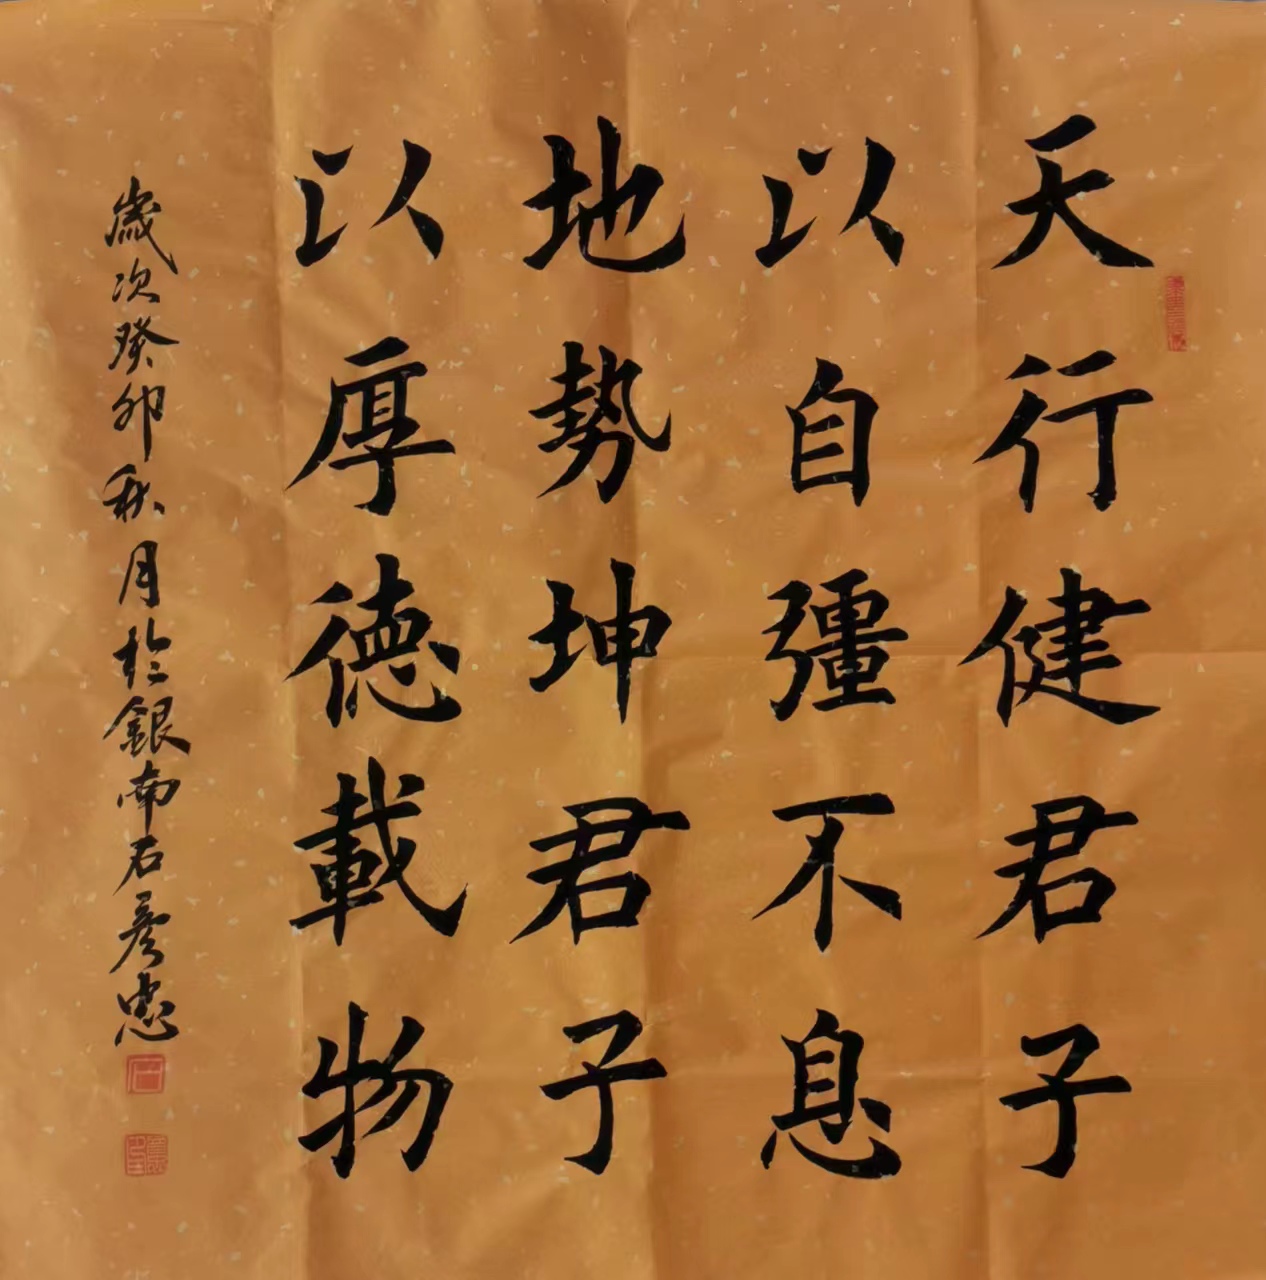 天行健君子
以自彊不息
地勢坤君子
以厚德載物
歲次癸卯秋月於銀南石彦忠